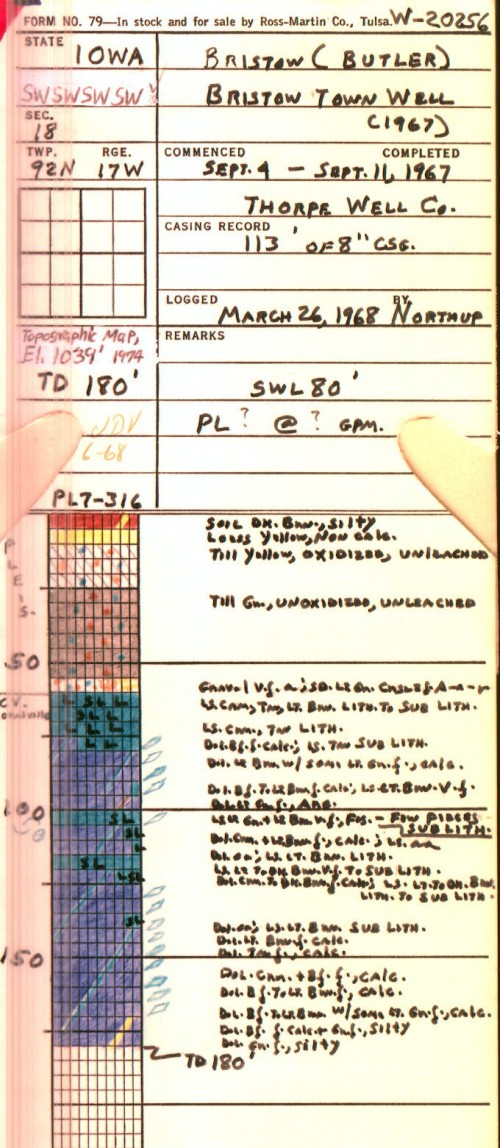 FORM NO. 79—In stock and for sale by Ross-Martin Co., Tulsa. W-20256
STATE IOWA BRISTOW (BUTLER)
SW SW SW SW BRISTOW TOWN WELL
SEC. 18 (1967)
TWP. RGE. COMMENCED COMPLETED
92N 17W SEPT. 4 — SEPT. 11, 1967
THORPE WELL CO.
CASING RECORD
113' OF 8" CSG.
LOGGED BY
MARCH 26, 1968 NORTHUP
Topographic Map, REMARKS
El. 1039' 1974
TD 180' SWL 80'
JDV PL ? @ ? GPM.
6-68
PL7-316
SOIL DK. BRN., SILTY
LOESS YELLOW, NON CALC.
TILL YELLOW, OXIDIZED, UNLEACHED
PLEIS.
TILL GN., UNOXIDIZED, UNLEACHED
50
LS. CRM., TAN LT. BRN. LITH. TO SUB LITH.
C.V.
LS. CRM., TAN LITH.
DOL. BF. F. CALC.; LS. TAN SUB LITH.
DOL. LT. BRN. W/ SOME LT. GN. F., CALC.
DOL. BF. TO LT. BRN. F. CALC; LS. LT. BRN. V.F.
100
FEW PIECES
SUB LITH.
DOL. CRM. + LT. BRN. F., CALC.; LS. AA
DOL. AA; LS. LT. BRN. LITH.
LS. LT. TO DK. BRN. V.F. TO SUB LITH.
DOL. CRM. TO DK. BRN. F. CALC; LS. LT. TO DK. BRN.
LITH. TO SUB LITH.
DOL. AA; LS. LT. BRN. SUB LITH.
DOL. LT. BRN. F. CALC.
150
DOL. TAN F., CALC.
DOL. CRM. + BF. F., CALC.
DOL. BF. TO LT. BRN. F., CALC.
DOL. BF. TO LT. BRN. W/ SOME LT. GN. F., CALC.
DOL. BF. F. CALC + GN. F., SILTY
DOL. GN. F., SILTY
TD 180'